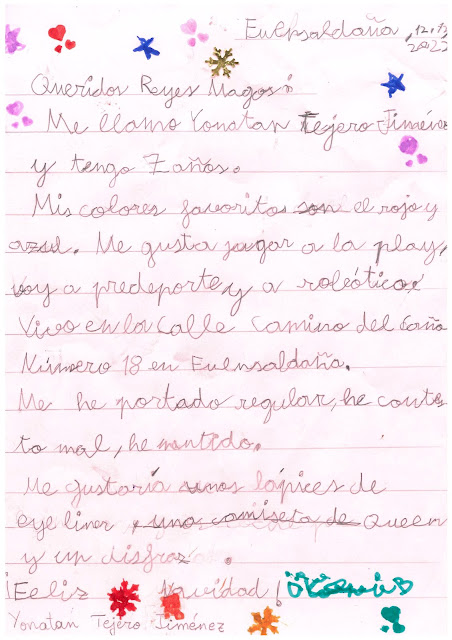 Fuensaldaña, 12, 12
2023
Queridos Reyes Magos:
Me llamo Yonatan Tejero Jiménez
y tengo 7 años.
Mis colores favoritos son el rojo y
azul. Me gusta jugar a la play,
voy a predeporte y a robótica.
Vivo en la Calle Camino del Caño
Número 18 en Fuensaldaña.
Me he portado regular, he contes
to mal, he mentido.
Me gustaría unos lápices de
eye liner, una camiseta de Queen
y un disfraz.
¡Feliz Navidad!
Yonatan Tejero Jiménez